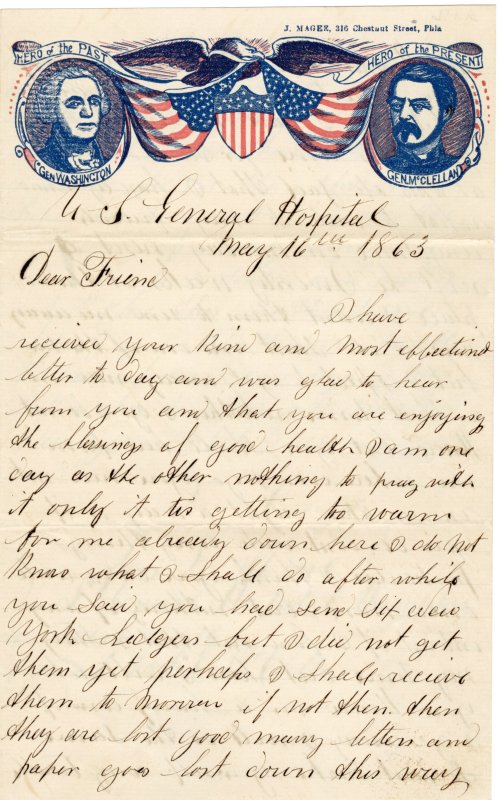 J. MAGEE, 316 Chestnut Street, Phla
HERO of the PAST
HERO of the PRESENT
GEN WASHINGTON
GEN. McCLELLAN
U S General Hospital
May 16th 1863
Dear Friend
I have
recieved your kind and most effectiond
letter to day and was glad to hear
from you and that you are enjoying
the blessings of good health I am one
day as the other nothing to prag with
it only it tis getting to warm
for me already down here I do not
know what I shall do after while
you said you had send Six New
York Ledgers but I did not get
them yet perhaps I shall recieve
them to morrow if not then then
they are lost good many letters and
paper goes lost down this way